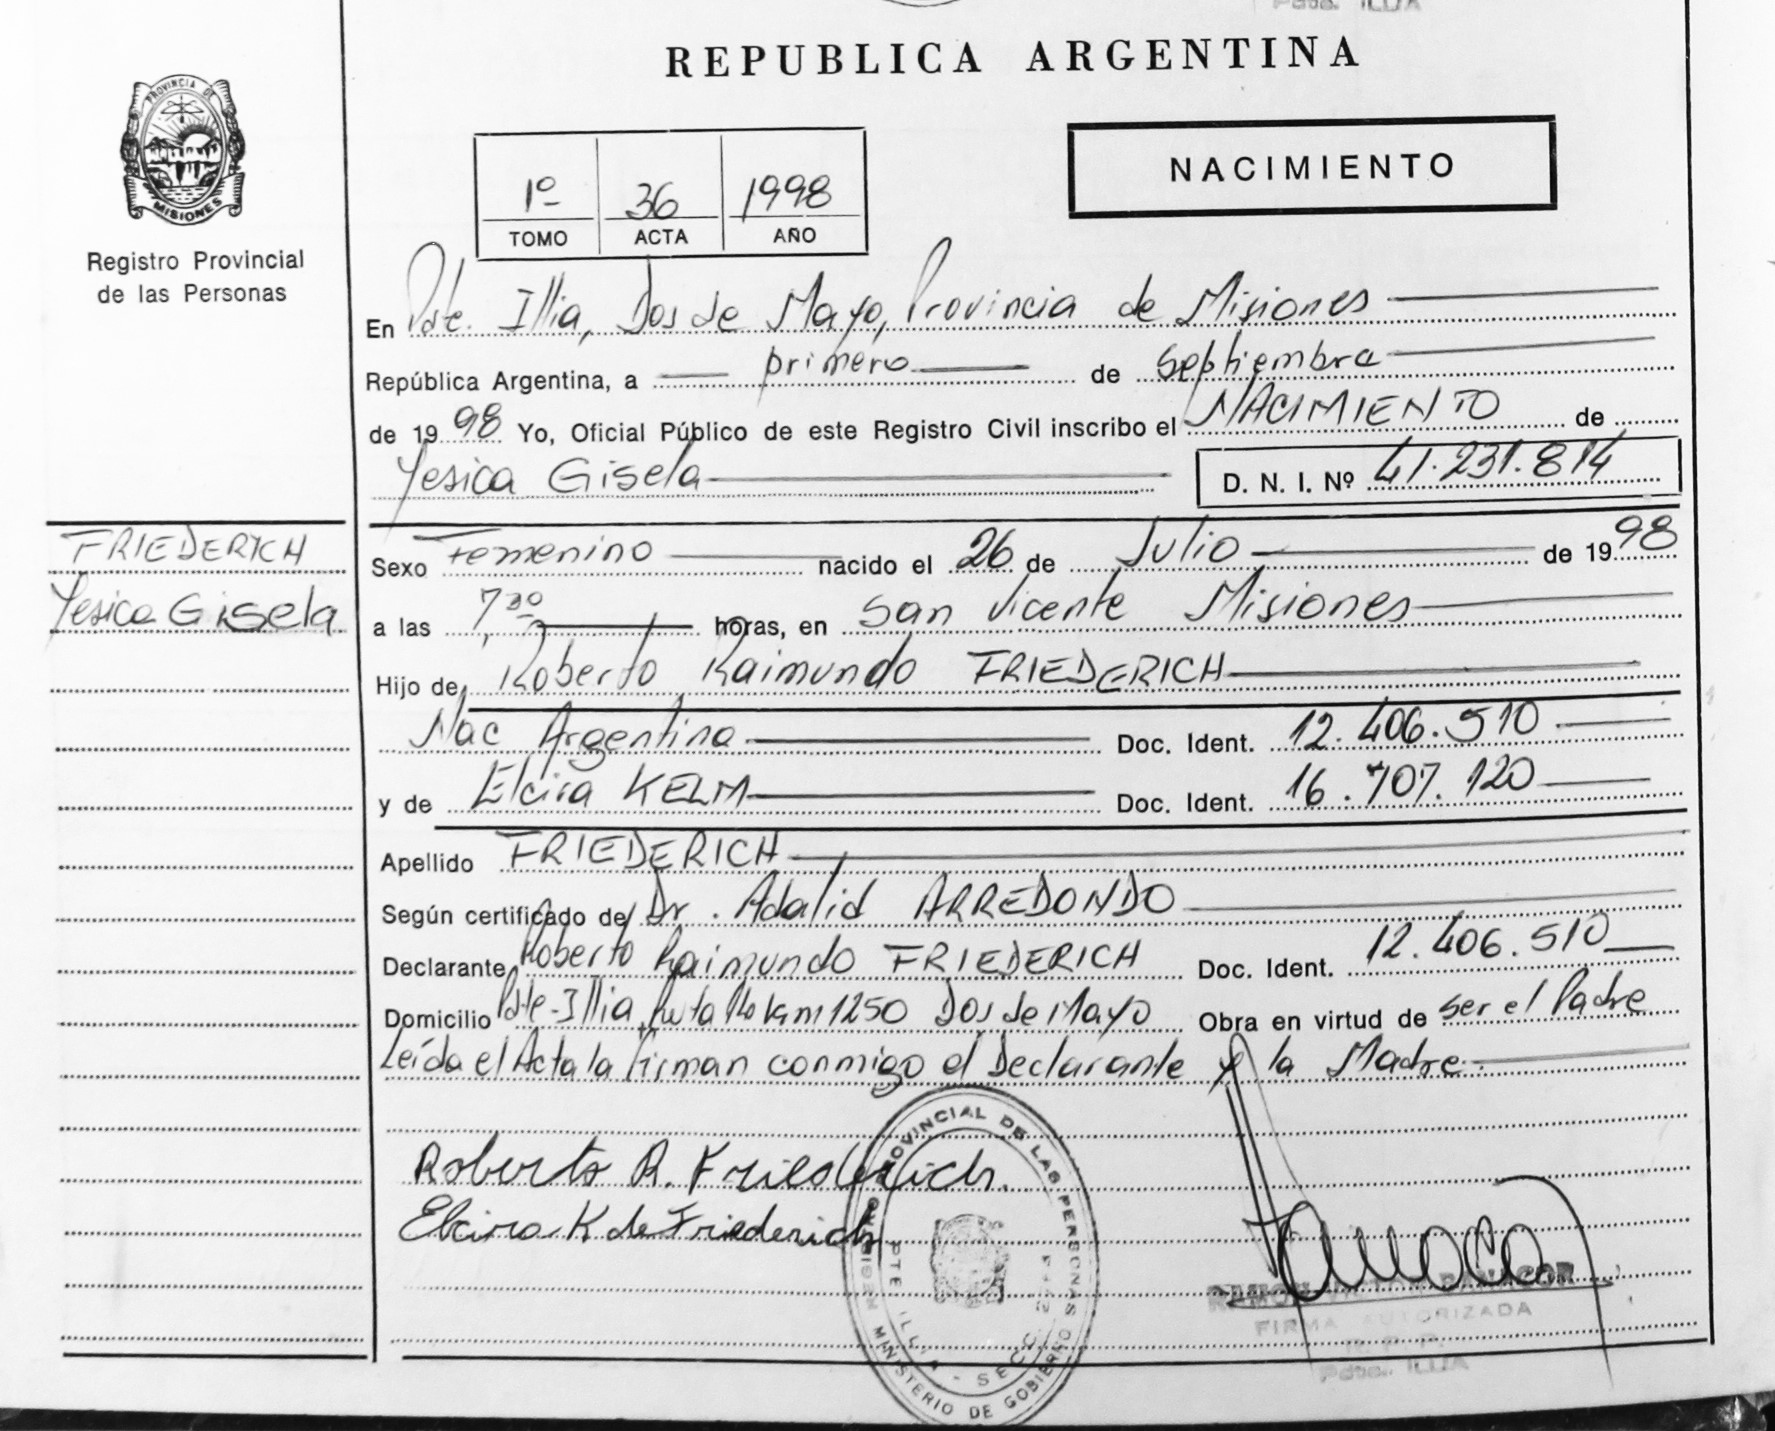 REPUBLICA ARGENTINA
PROVINCIA DE
MISIONES
Registro Provincial
de las Personas
1º 36 1998
TOMO ACTA AÑO
NACIMIENTO
En Pdte. Illia, Dos de Mayo, Provincia de Misiones
República Argentina, a primero de Septiembre
de 1998 Yo, Oficial Público de este Registro Civil inscribo el NACIMIENTO de
Yesica Gisela D. N. I. Nº 41.231.814
FRIEDERICH
Yesica Gisela
Sexo Femenino nacido el 26 de Julio de 1998
a las 7,30 horas, en San Vicente Misiones
Hijo de Roberto Raimundo FRIEDERICH
Nac Argentina Doc. Ident. 12.406.510
y de Elcira KELM Doc. Ident. 16.707.120
Apellido FRIEDERICH
Según certificado de Dr. Adalid ARREDONDO
Declarante Roberto Raimundo FRIEDERICH Doc. Ident. 12.406.510
Domicilio Pdte. Illia, Ruta 14 Km 1250 Dos de Mayo Obra en virtud de ser el Padre
Leída el Acta la firman conmigo el Declarante y la Madre.
Roberto R. Friederich.
Elcira K de Friederich
REGISTRO PROVINCIAL DE LAS PERSONAS
MINISTERIO DE GOBIERNO
PTE ILLIA - SECC.
FIRMA AUTORIZADA
R. P. P.
Pdte. ILLIA